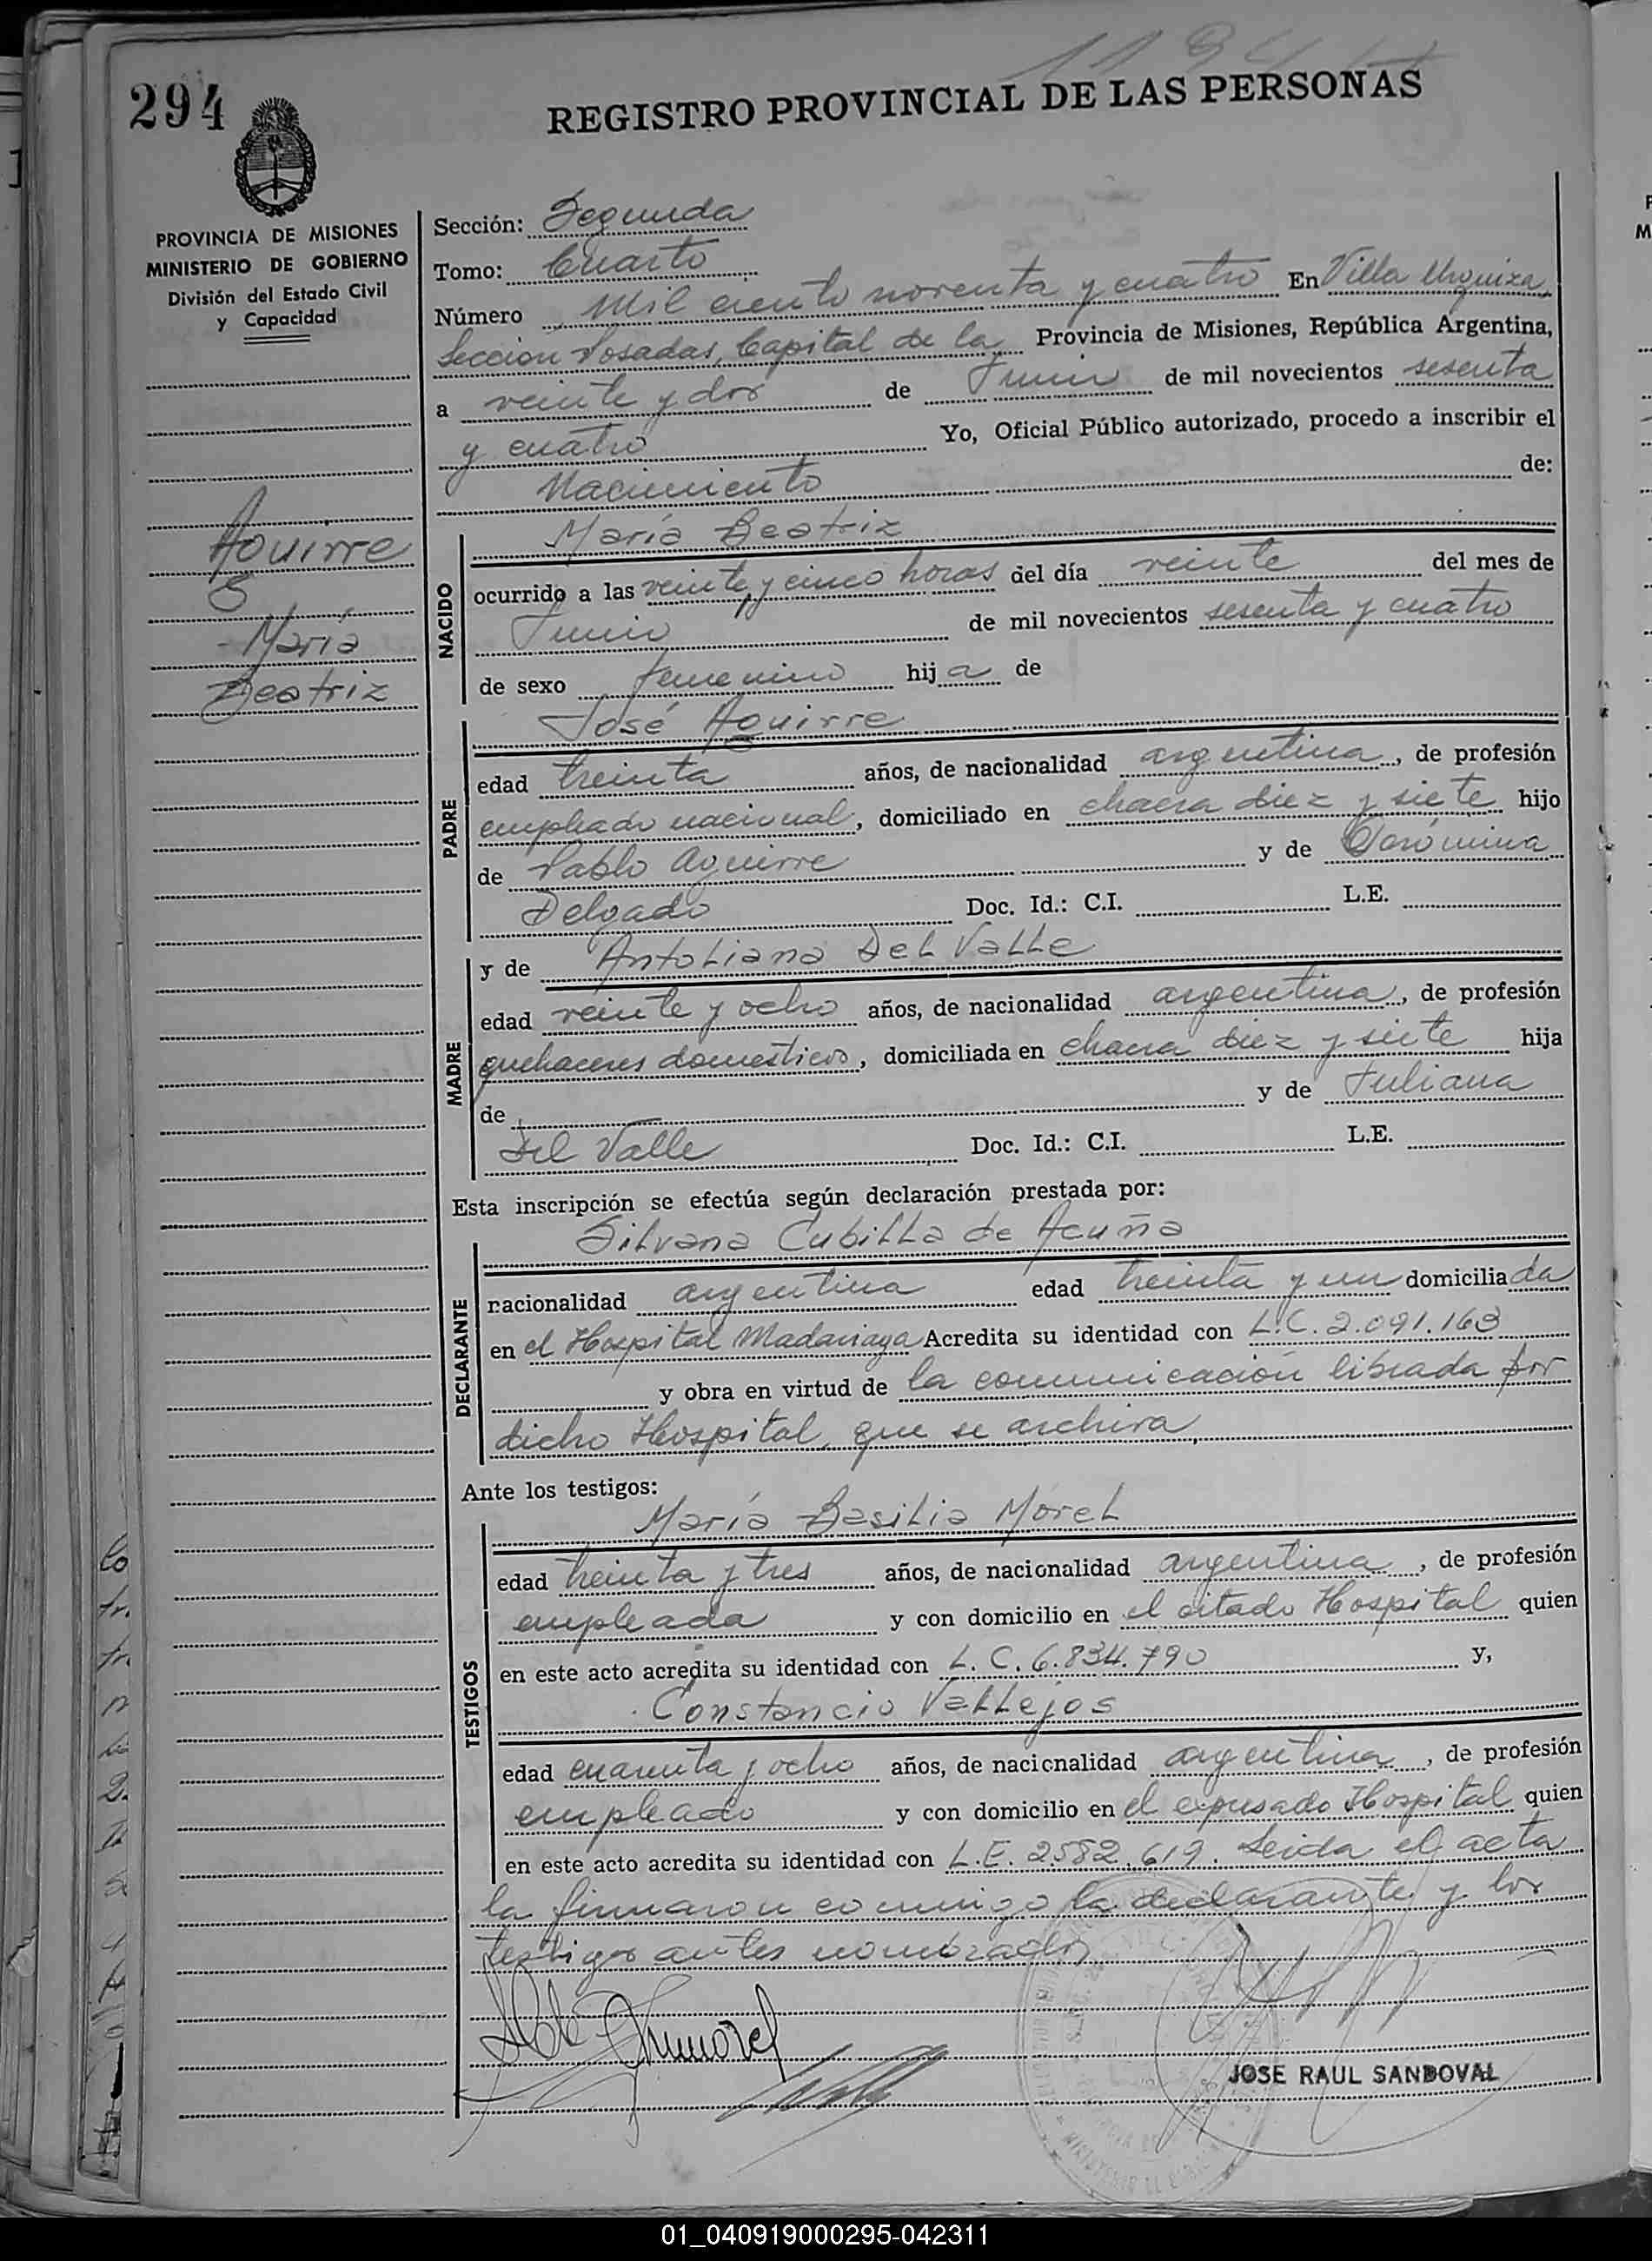 1194
294
REGISTRO PROVINCIAL DE LAS PERSONAS
PROVINCIA DE MISIONES
MINISTERIO DE GOBIERNO
División del Estado Civil
y Capacidad
Aguirre
María
Beatriz
Sección: Segunda
Tomo: Cuarto
Número Mil ciento noventa y cuatro En Villa Urquiza
Sección Posadas, Capital de la Provincia de Misiones, República Argentina,
a veinte y dos de Junio de mil novecientos sesenta
y cuatro Yo, Oficial Público autorizado, procedo a inscribir el
Nacimiento de:
NACIDO
María Beatriz
ocurrido a las veinte y cinco horas del día veinte del mes de
Junio de mil novecientos sesenta y cuatro
de sexo femenino hija de
PADRE
José Aguirre
edad treinta años, de nacionalidad argentina, de profesión
empleado nacional, domiciliado en chacra diez y siete hijo
de Pablo Aguirre y de Gerómina
Delgado Doc. Id.: C.I. L.E.
MADRE
y de Antoliana Del Valle
edad veinte y ocho años, de nacionalidad argentina, de profesión
quehaceres domésticos, domiciliada en chacra diez y siete hija
de y de Juliana
Del Valle Doc. Id.: C.I. L.E.
Esta inscripción se efectúa según declaración prestada por:
DECLARANTE
Silvana Cubilla de Acuña
nacionalidad argentina edad treinta y un domiciliada
en el Hospital Madariaga Acredita su identidad con L.C. 2.091.163
y obra en virtud de la comunicación librada por
dicho Hospital, que se archiva.
Ante los testigos:
TESTIGOS
María Basilia Morel
edad treinta y tres años, de nacionalidad argentina, de profesión
empleada y con domicilio en el citado Hospital quien
en este acto acredita su identidad con L.C. 6.834.790 y,
Constancio Vallejos
edad cuarenta y ocho años, de nacionalidad argentina, de profesión
empleado y con domicilio en el expresado Hospital quien
en este acto acredita su identidad con L.E. 2582.619. Leida el acta
la firmaron conmigo la declarante y los
testigos antes nombrados
JOSE RAUL SANDOVAL
01_040919000295-042311